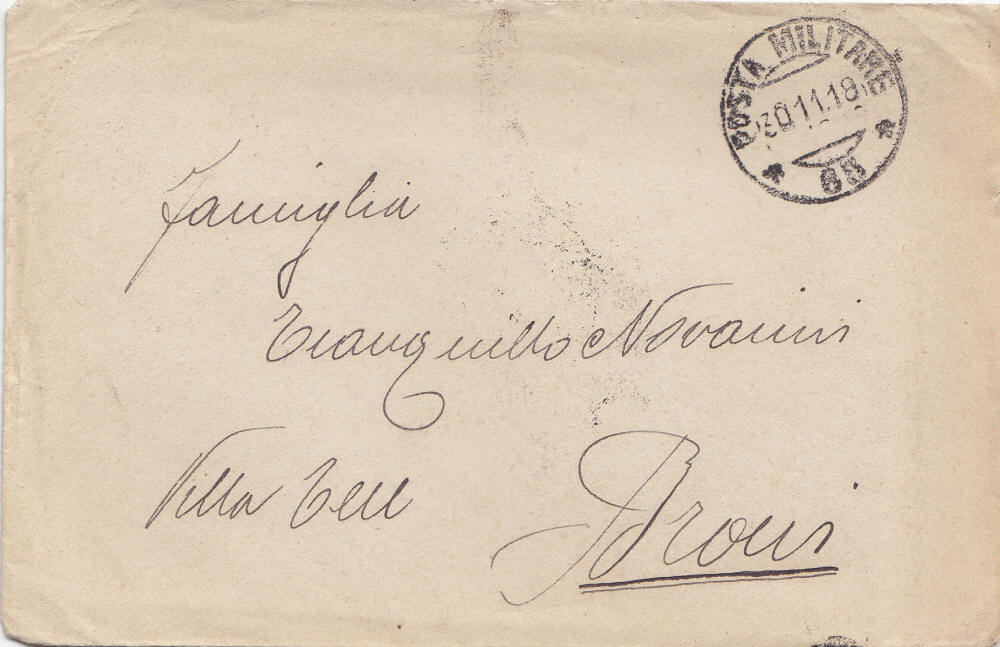 POSTA MILITARE
30.11.18
* 68 *
Famiglia
Tranquillo Novarini
Villa Tell
Broni